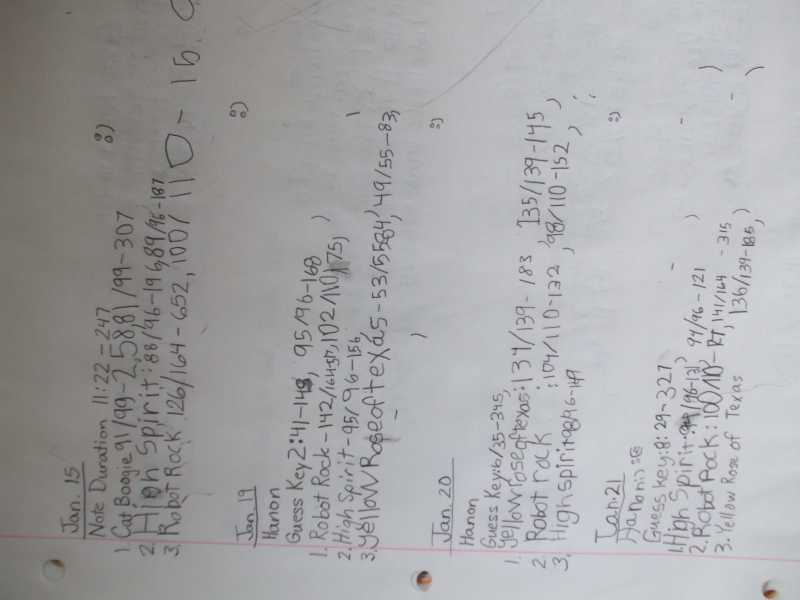 Jan. 15
Note Duration 11:22-247
1. Cat Boogie 91/99-2,58,81/99-307
2. High Spirit: 88/96-196,89/96-187
3. Robot Rock 126/164-652,100/110-
:)
Jan 19
Hanon
Guess Key 2:41-148, 95/96-168
1. Robot Rock-142/164, 102/110,175,)
2. High Spirit-95/96-156
3. Yellow Rose of texas-53/55 84, 49/55-83,
:)
Jan. 20
Hanon
Guess Key: 6/35-345,
1. Yellow rose of texas: 134/139-183, 135/139-145
2. Robot rock :104/110-132, 98/110-152,
3. High spirit 98/96-149
:)
Jan. 21
Hanon
Guess key: 8:29-327
1. High Spirit 91/96-121, 94/96-121
2. Robot Rock: 100/110- 141/164-315
3. Yellow Rose of Texas 136/139-185,
:)